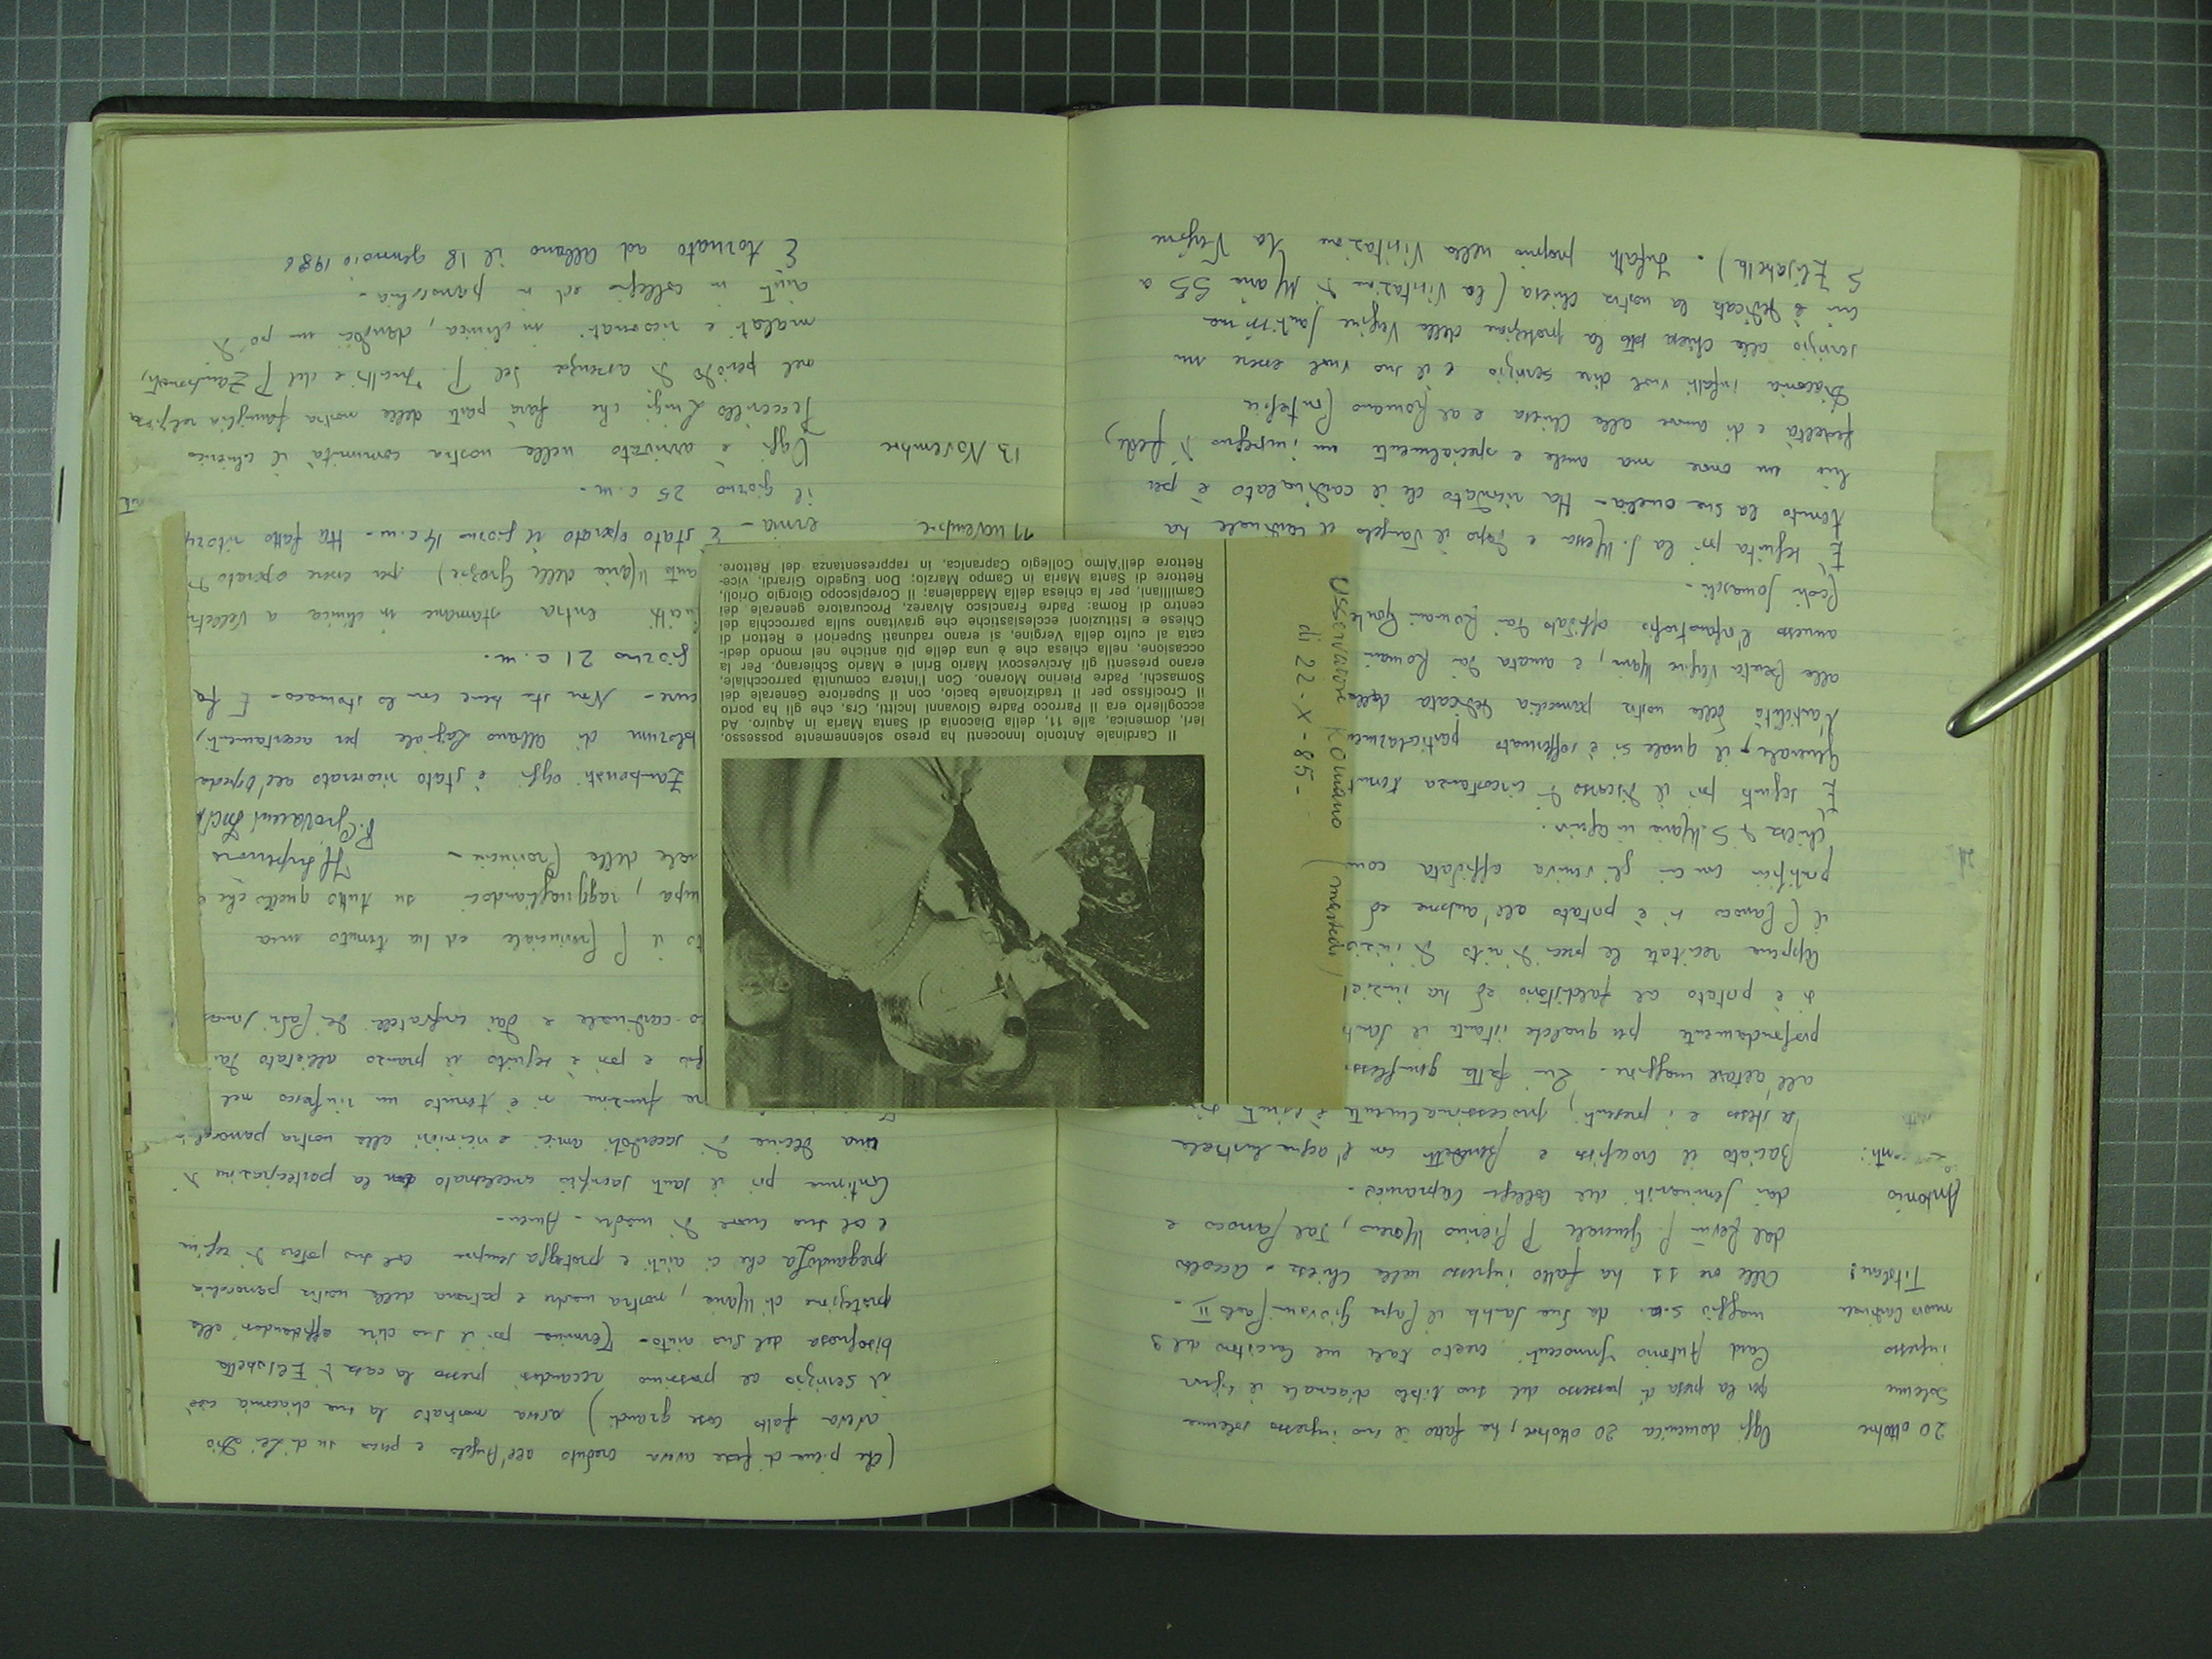 20 ottobre
Solenne
ingresso
nuovo Cardinale
Titolare:
Antonio
Innocenti:
Oggi domenica 20 ottobre, ha fatto il suo ingresso solenne
per la presa di possesso del suo titolo diaconale il Signor
Card Antonio Innocenti creato tale nel Concistoro del
maggio s.a. da Sua Santità il Papa Giovanni Paolo II -
Alle ore 11 ha fatto ingresso nella Chiesa - accolto
dal Rev.mo P. Generale P. Pierino Moreno, dal Parroco e
dai seminaristi del Collegio Capranica -
Baciato il Crocifisso e benedetti con l'acqua lustrale
se stesso e i presenti, processionalmente
all'altare maggiore - Qui fatta
profondamente per qualche istante il
si è portato al faldistorio ed ha
Appena recitate le preci di rito di
il Parroco si è portato all'ambone ed
pontificia con cui gli veniva affidata come
Chiesa di S. Maria in Aquiro.
È seguito poi il discorso di circostanza
Generale, il quale si è soffermato
l'antichità della nostra parrocchia dedicata
alla Beata Vergine Maria, e amata dai Romani
annesso l'orfanotrofio affidato dai Romani
Padri Somaschi.
È seguita poi la S. Messa e dopo il Vangelo il cardinale ha
tenuto la sua omelia - Ha ricordato che il cardinalato è per
lui un onore ma anche e specialmente un impegno di fede,
fedeltà e di amore alla Chiesa e al Romano Pontefice
Diaconia infatti vuol dire servizio e il suo vuol essere un
servizio alla Chiesa sotto la protezione della Vergine Santissima
cui è dedicata la nostra Chiesa (la Visitazione di Maria SS a
S Elisabetta). Infatti proprio nella Visitazione la Vergine
Osservatore Romano (martedì)
di 22-X-85-
Il Cardinale Antonio Innocenti ha preso solennemente possesso,
ieri, domenica, alle 11, della Diaconia di Santa Maria in Aquiro. Ad
accoglierlo era il Parroco Padre Giovanni Incitti, Crs, che gli ha porto
il Crocifisso per il tradizionale bacio, con il Superiore Generale dei
Somaschi, Padre Pierino Moreno. Con l'intera comunità parrocchiale,
erano presenti gli Arcivescovi Mario Brini e Mario Schierano. Per la
occasione, nella chiesa che è una delle più antiche nel mondo dedi-
cata al culto della Vergine, si erano radunati Superiori e Rettori di
Chiese e Istituzioni ecclesiastiche che gravitano sulla parrocchia del
centro di Roma: Padre Francisco Alvarez, Procuratore generale dei
Camilliani, per la chiesa della Maddalena; il Corepiscopo Giorgio Orioli,
Rettore di Santa Maria in Campo Marzio; Don Eugedio Girardi, vice-
Rettore dell'Almo Collegio Capranica, in rappresentanza del Rettore.
(che piena di fede aveva creduto all'Angelo e perciò su di Lei Dio
aveva fatto cose grandi) aveva mostrato la sua diaconia cioè
il servizio al prossimo recandosi presso la casa di Elisabetta
bisognosa del suo aiuto - Termina poi il suo dire affidandosi alla
protezione di Maria, nostra madre e patrona della nostra parrocchia
pregandola che ci aiuti e protegga sempre col suo potere di regina
e col suo cuore di madre - Amen -
Continua poi il santo sacrificio concelebrato con la partecipazione di
una decina di sacerdoti amici e vicinori alla nostra
funzione si è tenuto un rinfresco nel
e poi è seguito il pranzo allietato da
cardinale e dai confratelli
il P Provinciale ed ha tenuto una
raggruagliandoci su tutto quello che
della Provincia -
Il Superiore
P. Giovanni Incitti
Zambonati oggi è stato ricoverato all'
di Albano Laziale per accertamenti,
cure - Non sta bene con lo stomaco -
giorno 21 c.m.
entra stamane in clinica a Velletri
Maria delle Grazie) per essere operato di
11 novembre
ernia - È stato operato il giorno 14 c.m. - Ha fatto
il giorno 25 c.m. -
13 Novembre
Oggi è arrivato nella nostra comunità il chierico
Luigi che farà parte della nostra famiglia religiosa
nel periodo di assenza del P. Incitti e del P Zambonati,
malati e ricoverati in clinica, dandoci un po' di
aiuto in collegio ed in parrocchia -
È tornato ad Albano il 18 gennaio 1986